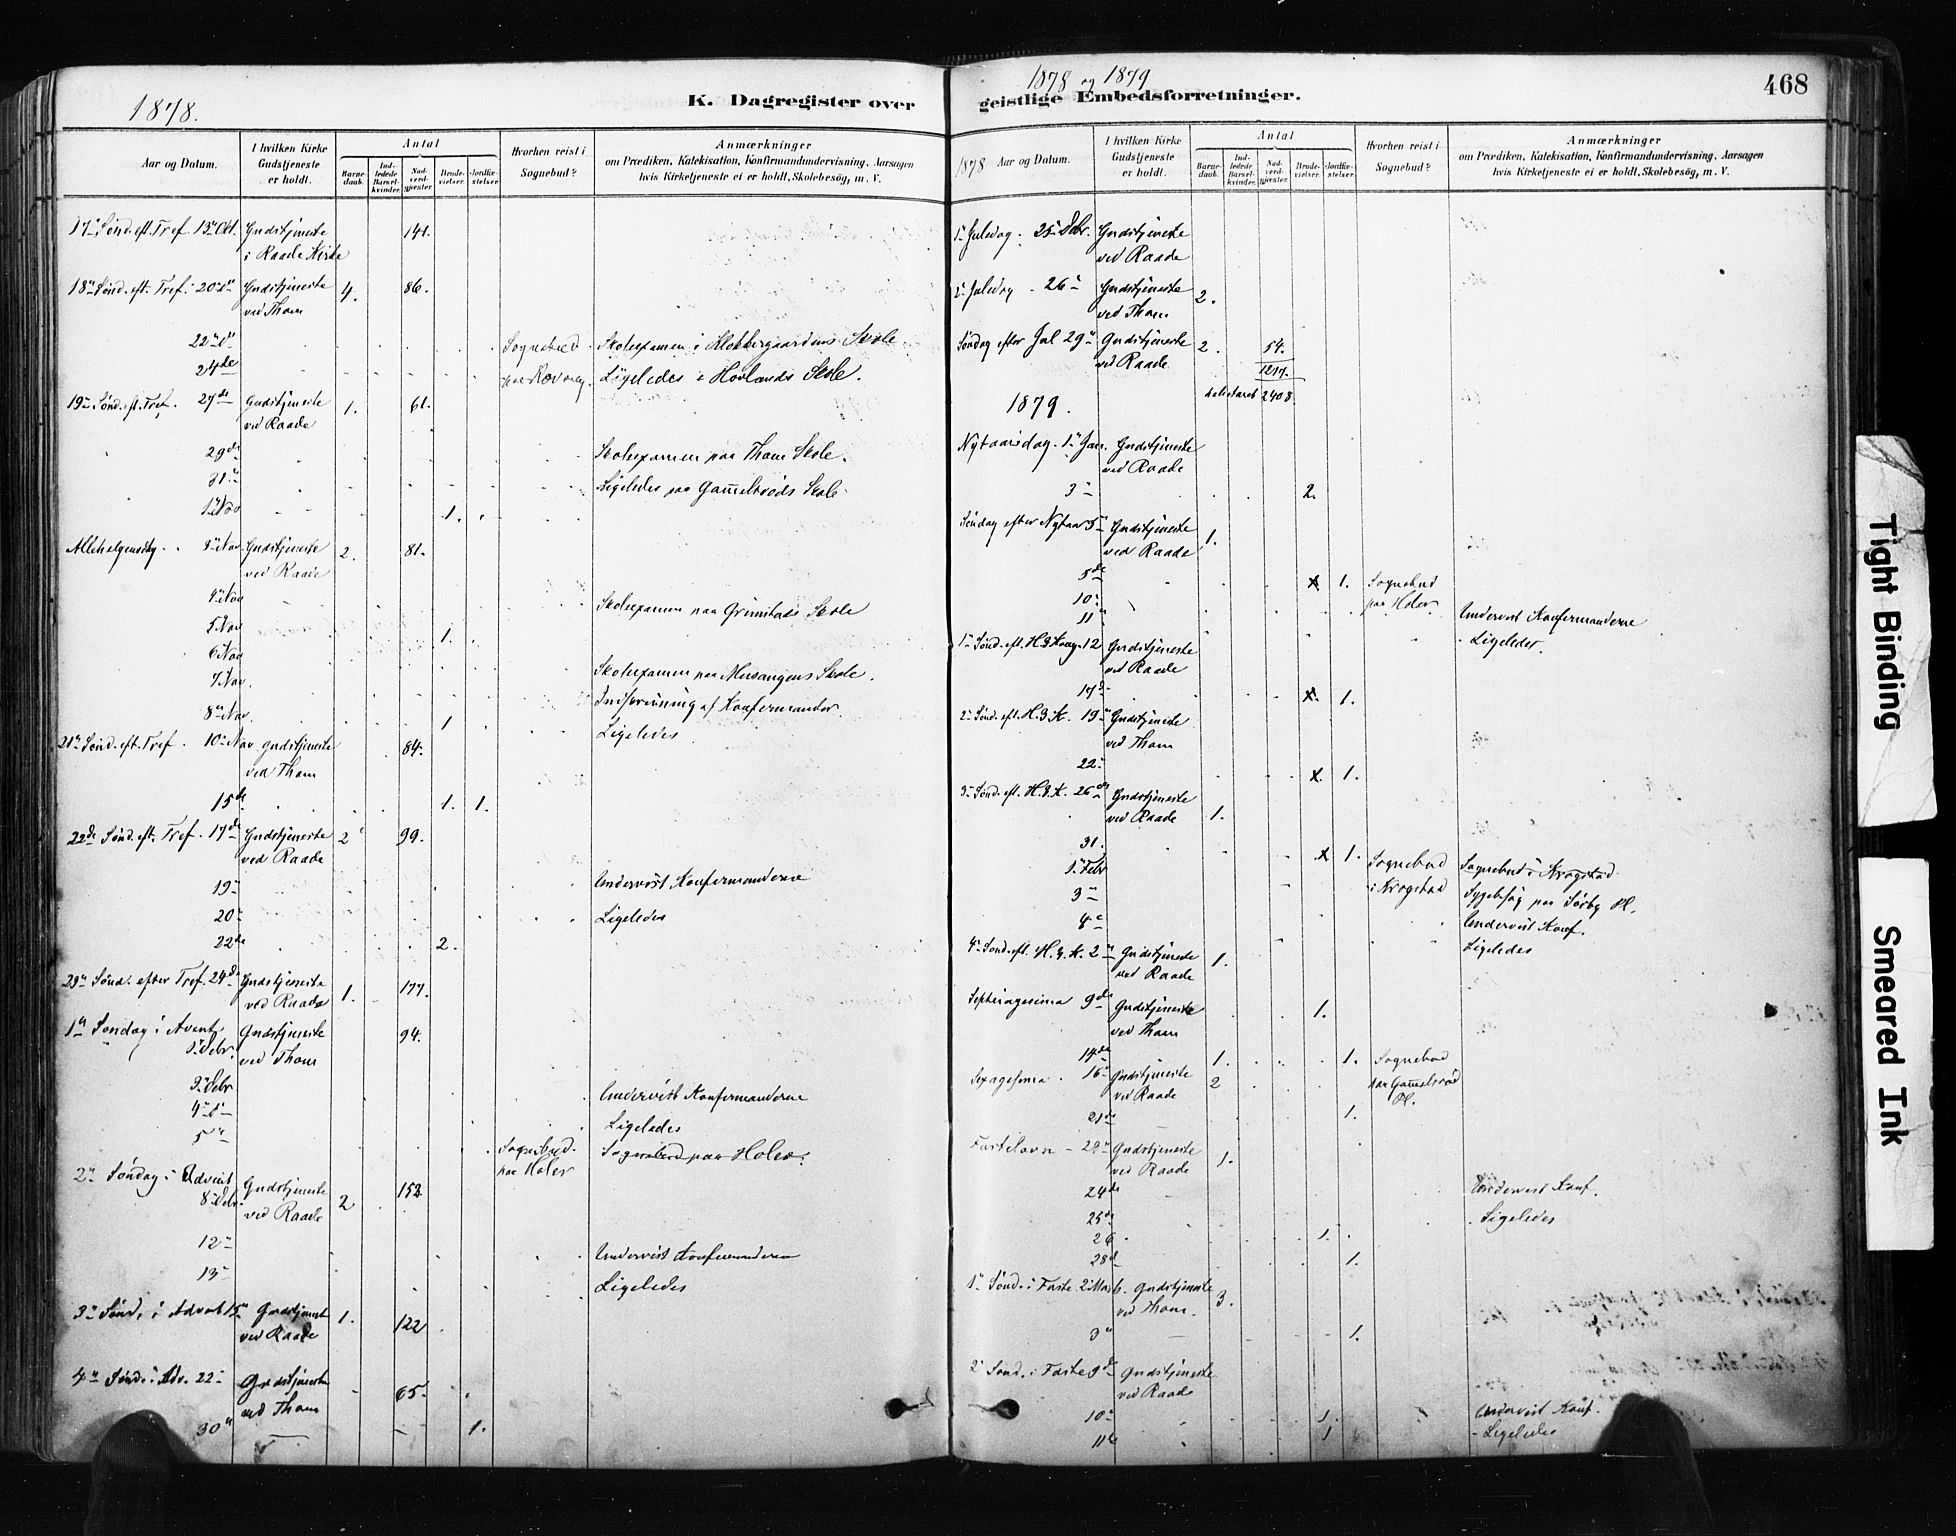 1878.
K. Dagregister over
Aar og Datum.
I hvilken Kirke Gudstjeneste er holdt.
Antal
Barnedaab.
Indledede Barselkvinder.
Nadverdgjester.
Brudevielser.
Jordfæstelser.
Hvorhen reist i Sognebud?
Anmærkninger
om Prædiken, Katekisation, Konfirmandundervisning, Aarsagen
hvis Kirketjeneste ei er holdt, Skolebesøg, m. V.
17de Sønd. eft. Tref. 13de Okt. Gudstjeneste 141.
i Raade Kirke
18de Sønd. eft. Tref. 20de Gudstjeneste 4. 86.
ved Thom
22de Sognebud Skoleexamen i Klokkergaardens Skole
24de paa Ligeledes i Hovlands Skole.
19de Sønd. eft. Tref. 27de Gudstjeneste 1. 61.
ved Raade
29de Skoleexamen paa Thom Skole.
31te Ligeledes paa Gam̄elsrøds Skole.
1 Nov 1.
Allehelgensdag 3 Nov. Gudstjeneste 2. 81.
ved Raade
4 Nov Skoleexamen paa Grimstads Skole
5 Nov 1.
6 Nov Skoleexamen paa Missingens Skole.
7 Nov. Indskrivning af Konfermander
8 Nov. 1 Ligeledes
21de Sønd. eft. Tref. 10 Nov gudstjeneste 84.
ved Thom
15de 1. 1.
22de Sønd. eft. Tref. 17de Gudstjeneste 2 99.
ved Raade
19de Undervist Konfermanderne
20de Ligeledes
22de 2.
23de Sønd. efter Tref. 24de Gudstjeneste 1. 177.
ved Raade
1ste Søndag i Advent Gudstjeneste 94.
1 Debr. ved Thom
3 Debr Undervist Konfermanderne
4de Ligeledes
5te Sognebud Sognebud paa Holer.
paa Holer
2den Søndag i Advent Gudstjeneste 2 152
8 Debr. ved Raade
12te Undervist Konfermanderne
13 Ligeledes
3die Sønd. i Advent 15de Gudstjeneste 1. 122
ved Raade
4de Sønd. i Adv. 22 Gudstjeneste 65.
ved Thom
30te 1.
1878 og 1879
geistlige Embedsforretninger.
468
1878 Aar og Datum.
I hvilken Kirke Gudstjeneste er holdt.
Antal
Barnedaab.
Indledede Barselkvinder.
Nadverdgjester.
Brudevielser.
Jordfæstelser.
Hvorhen reist i Sognebud?
Anmærkninger
om Prædiken, Katekisation, Konfirmandundervisning, Aarsagen
hvis Kirketjeneste ei er holdt, Skolebesøg, m. V.
1ste Juledag. 25de Debr. Gudstjeneste
ved Raade
2den Juledag 26de Gudstjeneste 2.
ved Thom
Søndag efter Jul 29de Gudstjeneste 2. 54.
ved Raade 1217.
2408.
1879.
Nytaarsdag. 1ste Jan. Gudstjeneste
ved Raade
3 2.
Søndag efter Nytaar 5 Gudstjeneste 1.
ved Raade
5de 1. Sognebud
10 paa Holer. Undervist Konfermanderne
11 Ligeledes.
1ste Sønd. eft. H. 3 Kong. 12 Gudstjeneste
ved Raade
17de 1.
2den Sønd. eft. H. 3 K. 19 Gudstjeneste
ved Thom
22 1.
3die Sønd. eft. H. 3. K. 26de Gudstjeneste 1.
ved Raade
31. 1.
1 Febr Sognebud Sognebud i Krogstad
3 i Krogstad Sygebesøg paa Sørby Pl.
4 Undervist Konf.
Ligeledes
4de Sønd. eft. H. 3. K. 2 Gudstjeneste 1.
ved Raade
Septuagesima 9de Gudstjeneste 1.
ved Thom
14de 1. 1. Sognebud
Sexagesima. 16de Gudstjeneste 2 paa Gam̄elsrød
ved Raade Pl.
21de 1.
Fastelavn 23de Gudstjeneste 1.
ved Raade
24de Undervist Konf.
25de Ligeledes
26 1.
28de 1.
1ste Sønd. i Faste 2 Marts. Gudstjeneste 3.
ved Thom.
3 1.
2den Sønd. i Faste 9de Gudstjeneste
ved Raade
10de 1. Undervist Konf.
11te 1 Ligeledes
Tight Binding
Smeared Ink